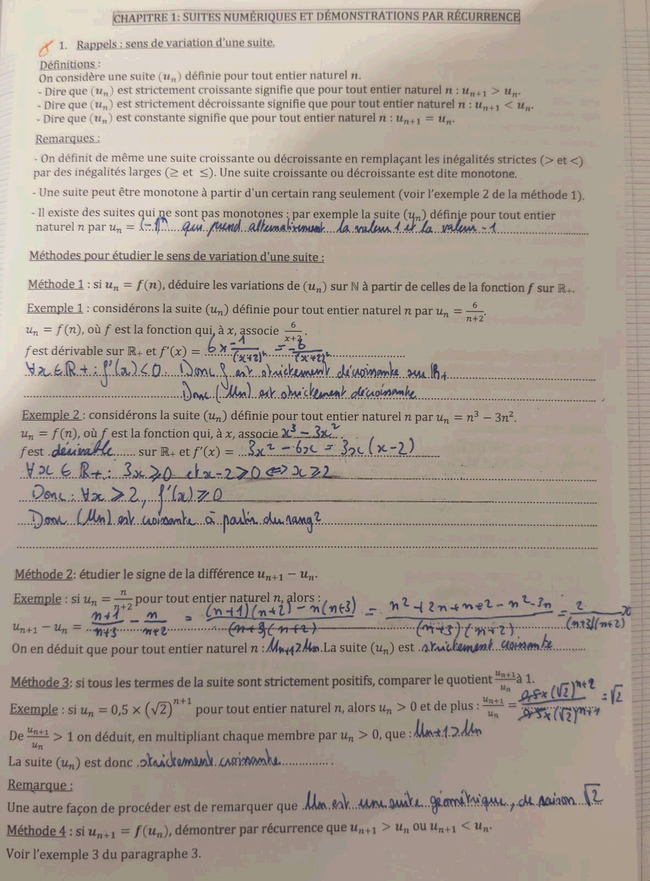 CHAPITRE 1: SUITES NUMÉRIQUES ET DÉMONSTRATIONS PAR RÉCURRENCE
1. Rappels : sens de variation d'une suite.
Définitions :
On considère une suite (uₙ) définie pour tout entier naturel n.
- Dire que (uₙ) est strictement croissante signifie que pour tout entier naturel n : uₙ₊₁ > uₙ.
- Dire que (uₙ) est strictement décroissante signifie que pour tout entier naturel n : uₙ₊₁ < uₙ.
- Dire que (uₙ) est constante signifie que pour tout entier naturel n : uₙ₊₁ = uₙ.
Remarques :
- On définit de même une suite croissante ou décroissante en remplaçant les inégalités strictes (> et <)
par des inégalités larges (≥ et ≤). Une suite croissante ou décroissante est dite monotone.
- Une suite peut être monotone à partir d'un certain rang seulement (voir l'exemple 2 de la méthode 1).
- Il existe des suites qui ne sont pas monotones ; par exemple la suite (uₙ) définie pour tout entier
naturel n par uₙ = (-1)ⁿ qui prend alternativement la valeur 1 et la valeur -1
Méthodes pour étudier le sens de variation d'une suite :
Méthode 1 : si uₙ = f(n), déduire les variations de (uₙ) sur ℕ à partir de celles de la fonction f sur ℝ₊.
Exemple 1 : considérons la suite (uₙ) définie pour tout entier naturel n par uₙ = 6/(n+2).
uₙ = f(n), où f est la fonction qui, à x, associe 6/(x+2).
f est dérivable sur ℝ₊ et f'(x) = 6 × -1/(x+2)² = -6/(x+2)²
∀x ∈ ℝ₊ : f'(x) < 0. Donc f est strictement décroissante sur ℝ₊
Donc (Un) est strictement décroissante
Exemple 2 : considérons la suite (uₙ) définie pour tout entier naturel n par uₙ = n³ − 3n².
uₙ = f(n), où f est la fonction qui, à x, associe x³ − 3x²
f est dérivable sur ℝ₊ et f'(x) = 3x² − 6x = 3x(x−2)
∀x ∈ ℝ₊ : 3x ≥ 0 et x−2 ≥ 0 ⇔ x ≥ 2
Donc : ∀x ≥ 2, f'(x) ≥ 0
Donc (Un) est croissante à partir du rang 2
Méthode 2: étudier le signe de la différence uₙ₊₁ − uₙ.
Exemple : si uₙ = n/(n+2) pour tout entier naturel n, alors :
uₙ₊₁ − uₙ = (n+1)/(n+3) − n/(n+2) = ((n+1)(n+2) − n(n+3))/((n+3)(n+2)) = (n²+2n+n+2−n²−3n)/((n+3)(n+2)) = 2/((n+3)(n+2)) >0
On en déduit que pour tout entier naturel n : Un+1 > Un. La suite (uₙ) est strictement croissante
Méthode 3: si tous les termes de la suite sont strictement positifs, comparer le quotient uₙ₊₁/uₙ à 1.
Exemple : si uₙ = 0,5 × (√2)ⁿ⁺¹ pour tout entier naturel n, alors uₙ > 0 et de plus : uₙ₊₁/uₙ = (0,5 × (√2)ⁿ⁺²)/(0,5 × (√2)ⁿ⁺¹) = √2
De uₙ₊₁/uₙ > 1 on déduit, en multipliant chaque membre par uₙ > 0, que : Un+1 > Un
La suite (uₙ) est donc strictement croissante
Remarque :
Une autre façon de procéder est de remarquer que Un est une suite géométrique, de raison √2
Méthode 4 : si uₙ₊₁ = f(uₙ), démontrer par récurrence que uₙ₊₁ > uₙ ou uₙ₊₁ < uₙ.
Voir l'exemple 3 du paragraphe 3.